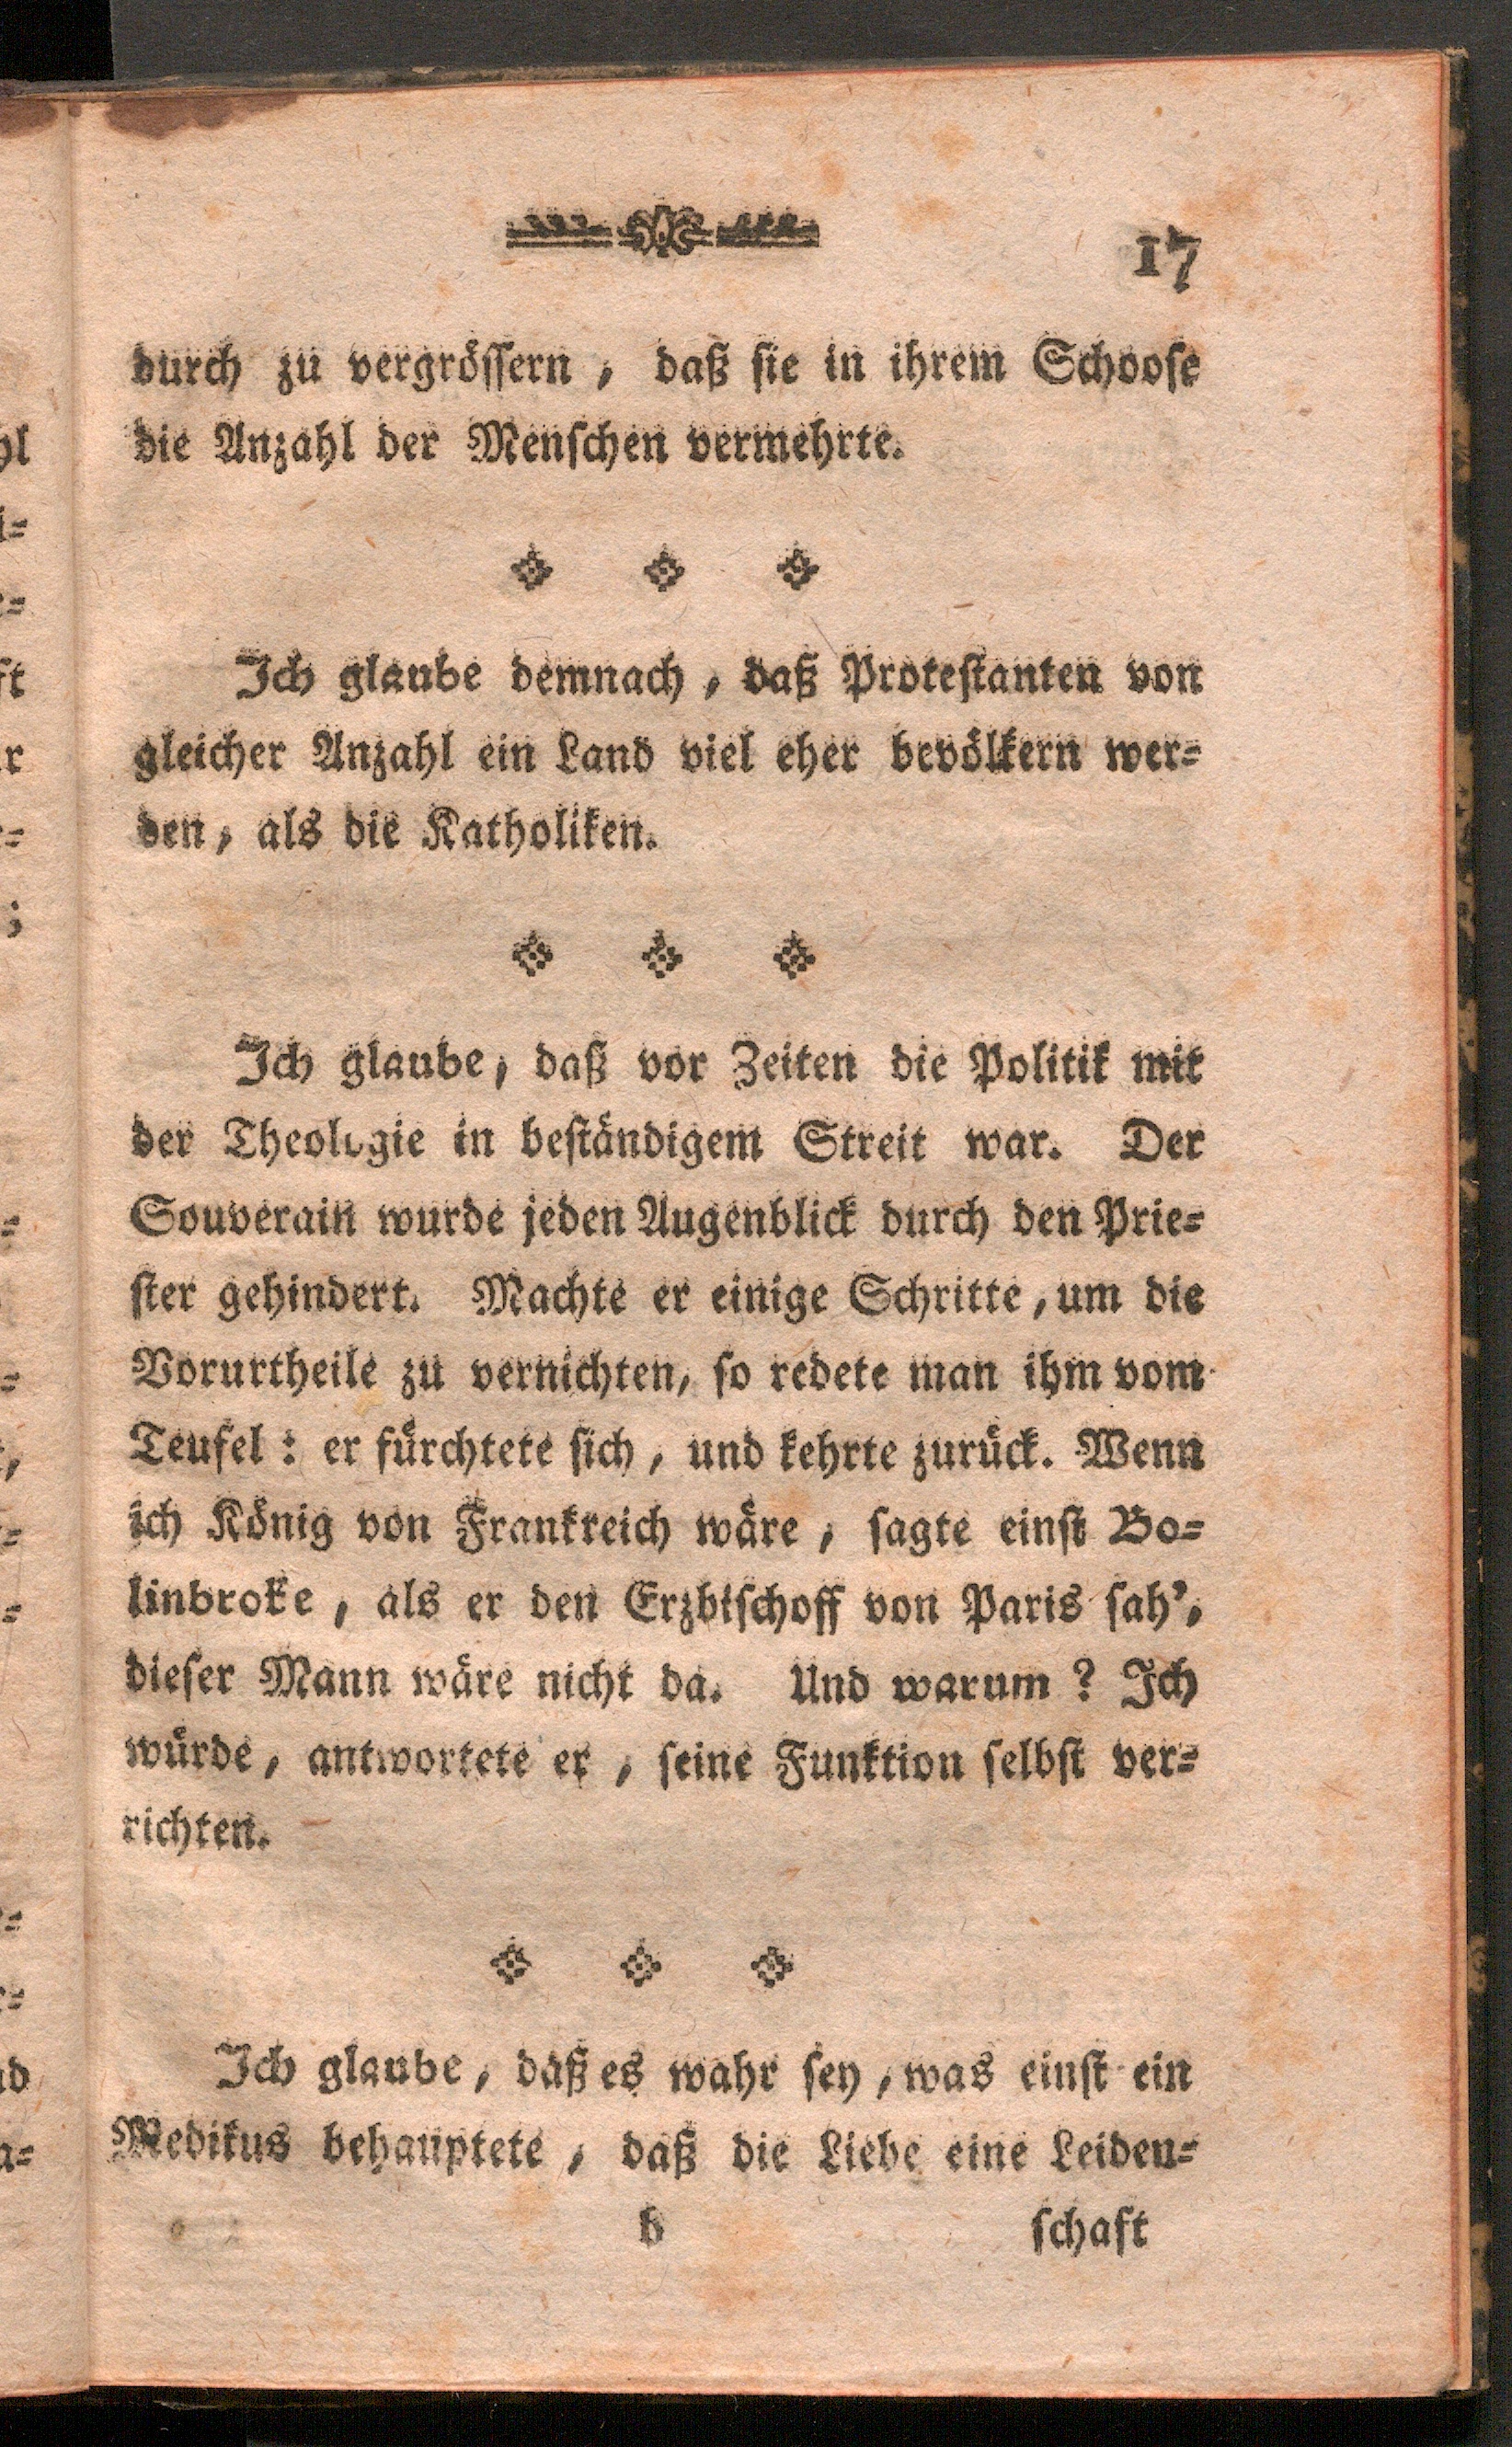 17
durch zu vergrössern, daß sie in ihrem Schoose
die Anzahl der Menschen vermehrte.
Ich glaube demnach, daß Protestanten von
gleicher Anzahl ein Land viel eher bevölkern wer=
den, als die Katholiken.
Ich glaube, daß vor Zeiten die Politik mit
der Theologie in beständigem Streit war. Der
Souverain wurde jeden Augenblick durch den Prie=
ster gehindert. Machte er einige Schritte, um die
Vorurtheile zu vernichten, so redete man ihm vom
Teufel: er fürchtete sich, und kehrte zurück. Wenn
ich König von Frankreich wäre, sagte einst Bo=
linbroke, als er den Erzbischoff von Paris sah',
dieser Mann wäre nicht da. Und warum? Ich
würde, antwortete er, seine Funktion selbst ver=
richten.
Ich glaube, daß es wahr sey, was einst ein
Medikus behauptete, daß die Liebe eine Leiden=
b schaft